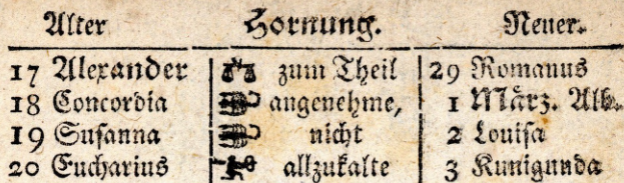 Alter Hornung. Neuer.
17 Alexander zum Theil 29 Romanus
18 Concordia angenehme, 1 März. Alb.
19 Susanna nicht 2 Louisa
20 Eucharius allzukalte 3 Kunigunda